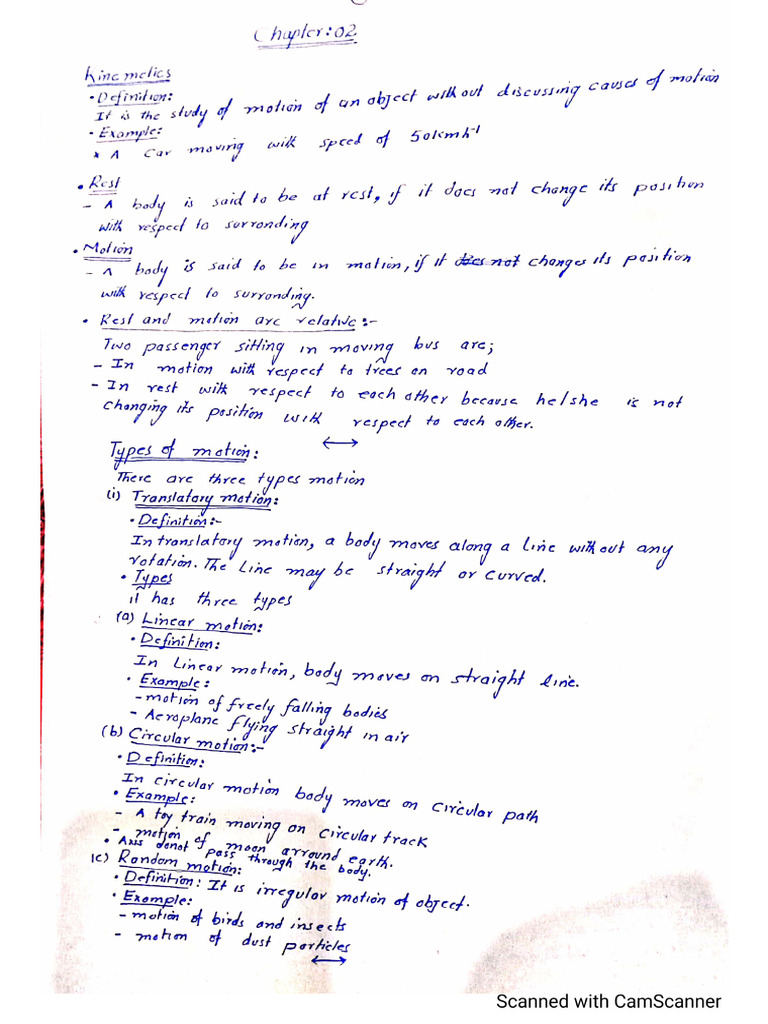 Chapter:02
Kinemetics
• Definition:
It is the study of motion of an object without discussing causes of motion
• Example:
* A Car moving with speed of 50kmh-1
• Rest
- A body is said to be at rest, if it does not change its position
with respect to surronding
• Motion
- A body is said to be in motion, if it does not changes its position
with respect to surronding.
• Rest and motion are relative:-
Two passenger sitting in moving bus are;
- In motion with respect to trees on road
- In rest with respect to each other because he/she is not
changing its position with respect to each other.
Types of motion:
There are three types motion
(i) Translatory motion:
• Definition:-
In translatory motion, a body moves along a line without any
rotation. The line may be straight or curved.
• Types
it has three types
(a) Linear motion:
• Definition:
In Linear motion, body moves on straight line.
• Example:
- motion of freely falling bodies
- Aeroplane flying straight in air
(b) Circular motion:-
• Definition:
In circular motion body moves on circular path
• Example:
- A toy train moving on circular track
- motion of moon arround earth.
• Axis donot pass through the body.
(c) Random motion:
• Definition: It is irregular motion of object.
• Example:
- motion of birds and insects
- motion of dust particles
Scanned with CamScanner